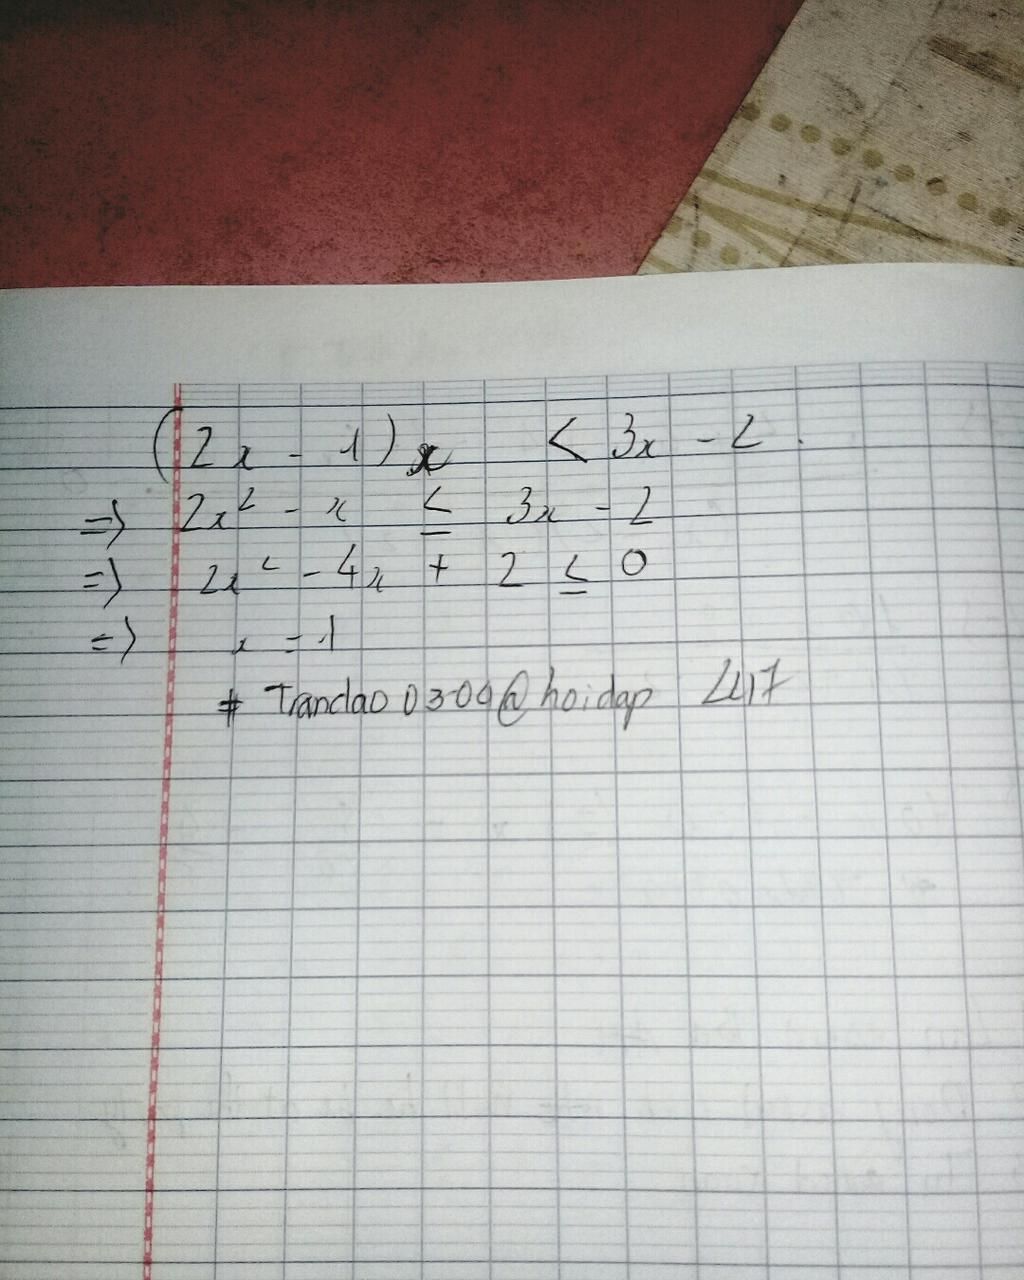 (2x - 1) x < 3x - 2.
=> 2x² - x ≤ 3x - 2
=> 2x² - 4x + 2 ≤ 0
=> x = 1
# Trandao 0304@hoidap 247